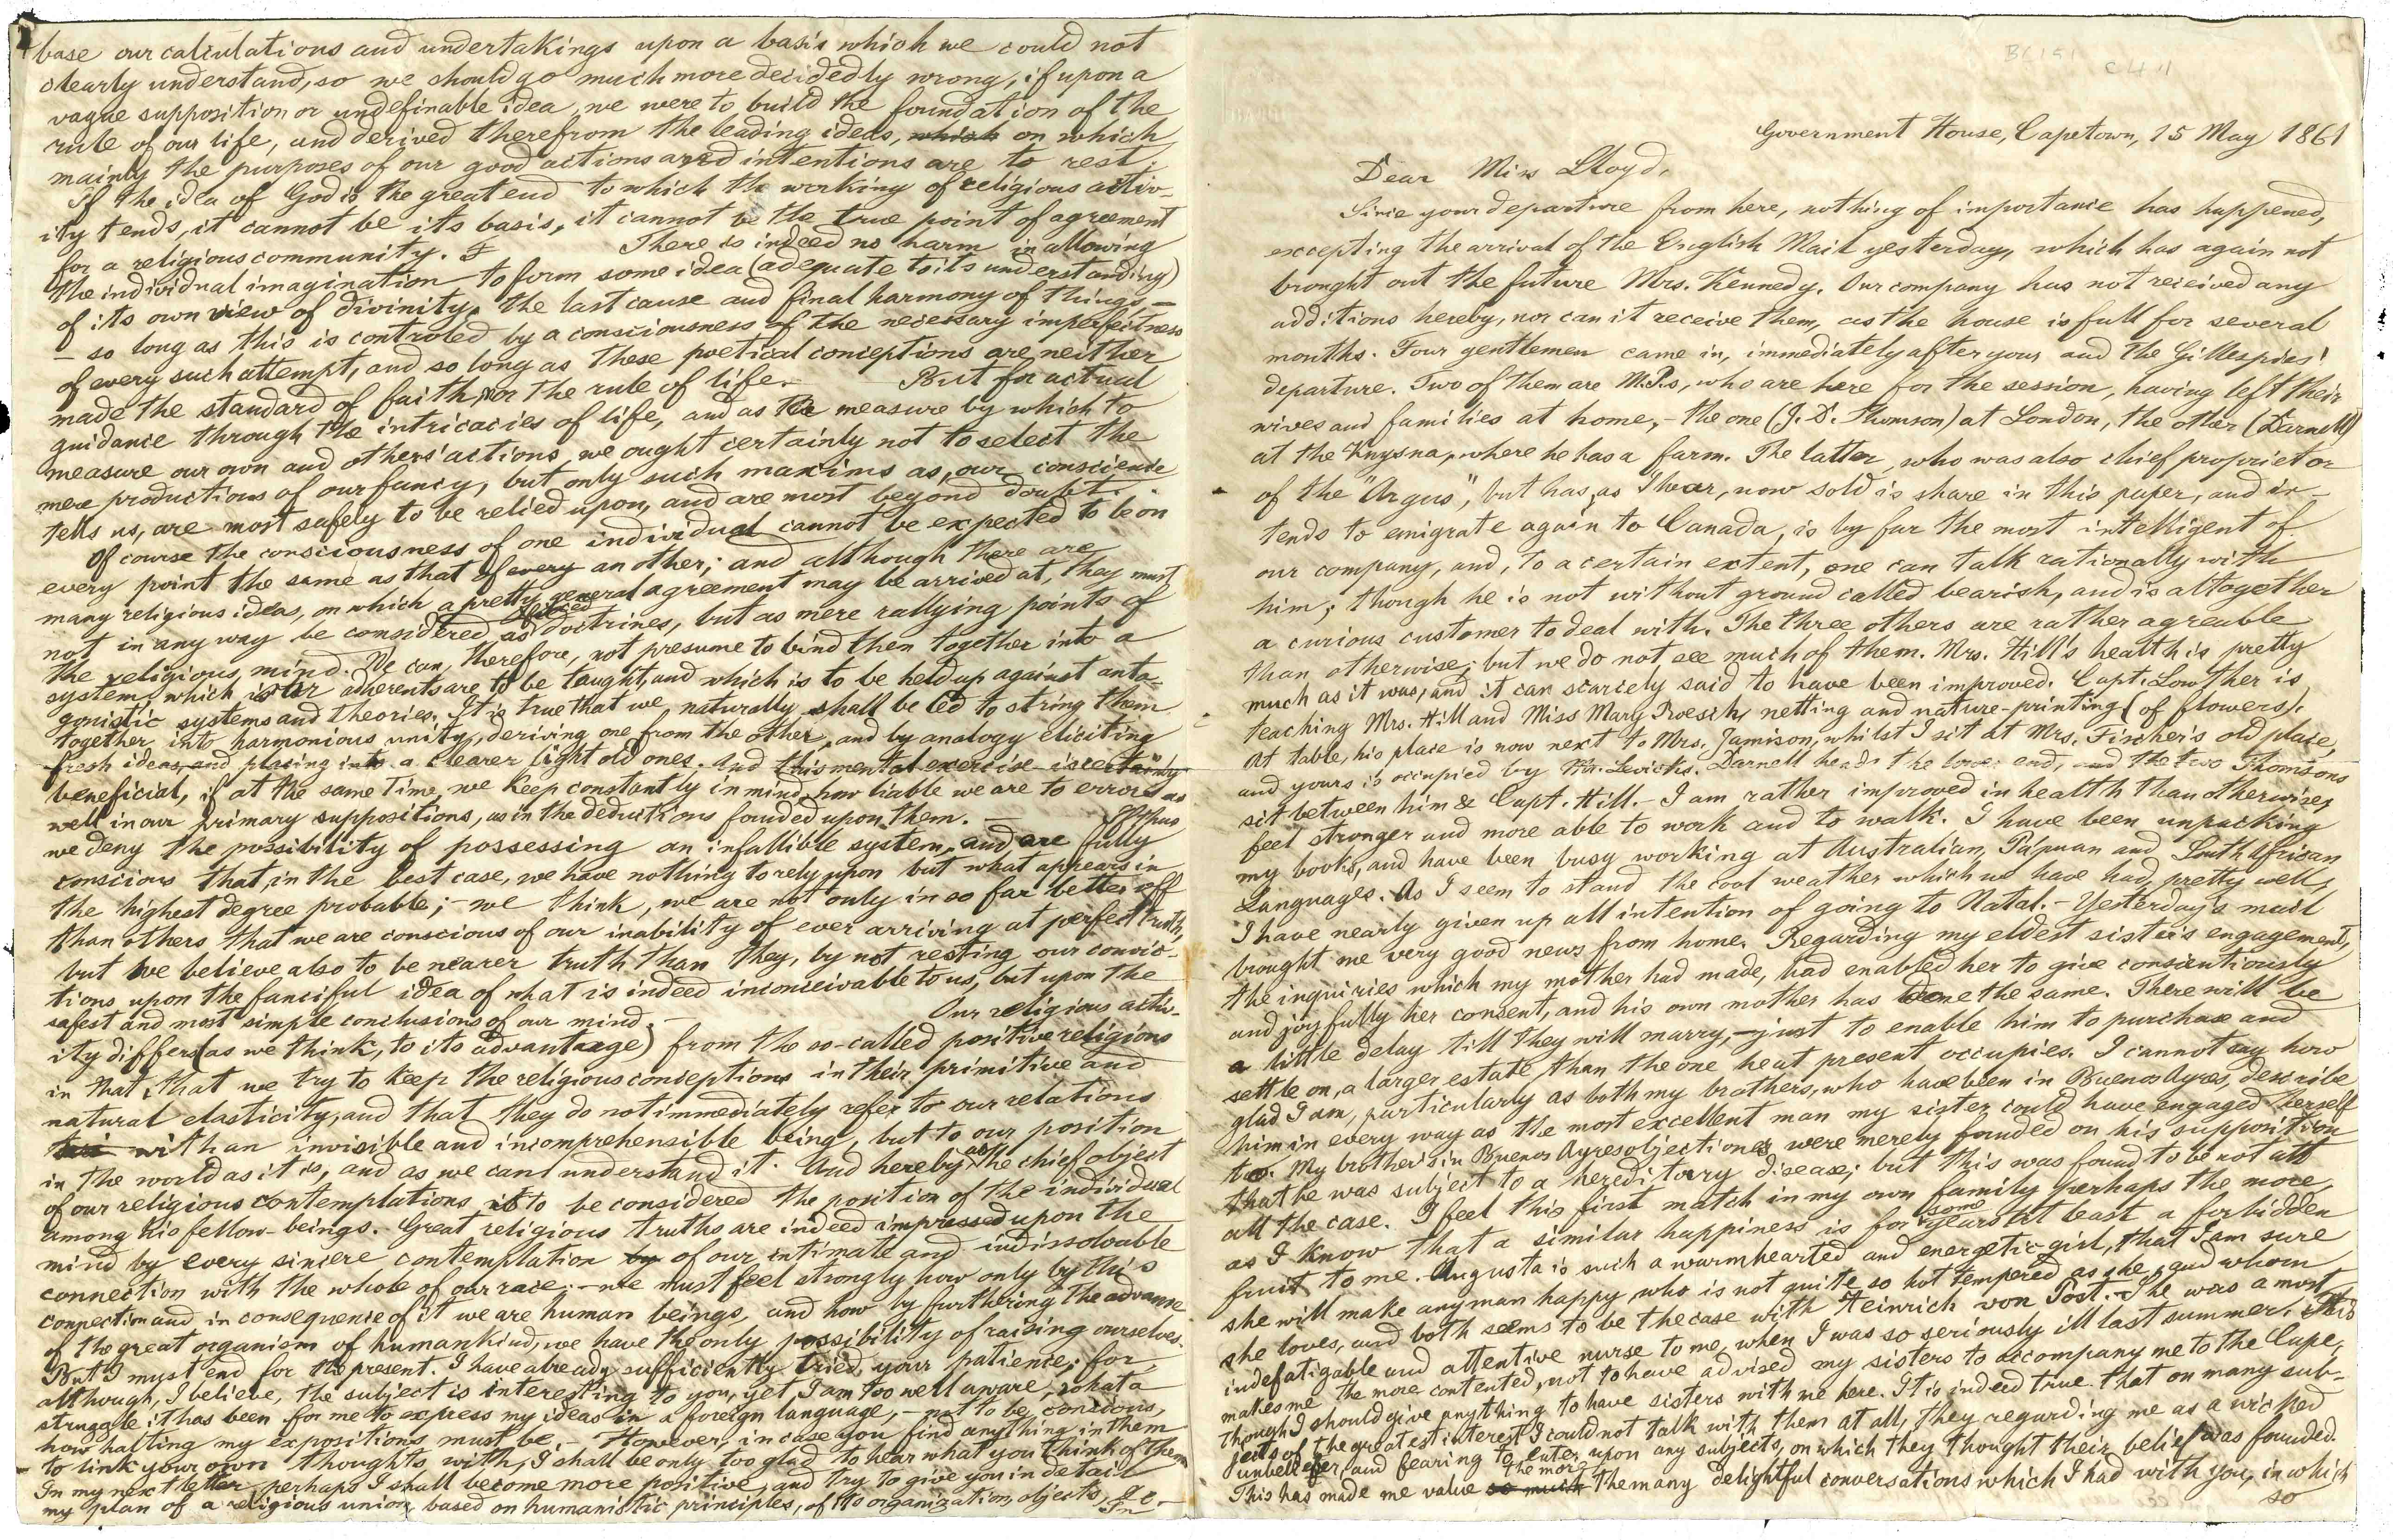 base our calculations and undertakings upon a basis which we could not
clearly understand, so we should go much more decidedly wrong, if upon a
vague supposition or undefinable idea, we were to build the foundation of the
rule of our life, and derived therefrom the leading ideas, which on which
mainly the purposes of our good actions and intentions are to rest.
If the idea of God is the great end to which the working of religious activ-
ity tends, it cannot be its basis, it cannot be the true point of agreement
for a religious community. There is indeed no harm in allowing
the individual imagination to form some idea (adequate to its understanding)
of its own view of divinity, the last cause and final harmony of things –
– so long as this is controled by a consciousness of the necessary imperfectness
of every such attempt, and so long as these poetical conceptions are neither
made the standard of faith, nor the rule of life. – But for actual
guidance through the intricacies of life, and as the measure by which to
measure our own and others' actions, we ought certainly not to select the
mere productions of our fancy, but only such maxims as, our conscience
tells us, are most safely to be relied upon, and are most beyond doubt.
Of course the consciousness of one individual cannot be expected to be on
every point the same as that of every another; and although there are
many religious ideas, on which a pretty general agreement may be arrived at, they must
not in any way be considered as doctrines, but as mere rallying points of
the religious mind. We can, therefore, not presume to bind then together into a
system, which adherents are to be taught, and which is to be held up against anta-
gonistic systems and theories. It is true that we, naturally shall be led to string them
together into harmonious unity, deriving one from the other, and by analogy eliciting
fresh ideas, and placing into a clearer light old ones. And this mental exercise is certainly
beneficial, if at the same time, we keep constantly in mind, how liable we are to errors as
well in our primary suppositions, as in the deductions founded upon them. – If thus
we deny the possibility of possessing an infallible system, and are fully
conscious that, in the best case, we have nothing to rely upon but what appears in
the highest degree probable; – we think, we are not only in so far better off
than others that we are conscious of our inability of ever arriving at perfect truth,
but we believe also to be nearer truth than they, by not resting our convic-
tions upon the fanciful idea of what is indeed inconceivable to us, but upon the
safest and most simple conclusions of our mind. – Our religious activ-
ity differs (as we think, to its advantaage) from the so-called positive religions
in that, that we try to keep the religious conceptions in their primitive and
natural elasticity, and that they do not immediately refer to our relations
with an invisible and incomprehensible being, but to our position
in the world as it is, and as we can understand it. And hereby as the chief object
of our religious contemplations is to be considered the position of the individual
among his fellow-beings. Great religious truths are indeed impressed upon the
mind by every sincere contemplation by of our intimate and indissolvable
connection with the whole of our race; – we must feel strongly how only by this
connection and in consequence of it we are human beings, and how by furthering the advance
of the great organism of humankind, we have the only possibility of raising ourselves.
But I must end for the present. I have already sufficiently tried your patience; for,
although, I believe, the subject is interesting to you, yet, I am too well aware, what a
struggle it has been for me to express my ideas in a foreign language, – not to be conscious,
how halting my expositions must be. – However, in case you find anything in them
to link your own thoughts with, I shall be only too glad to hear what you think of them.
In my next letter, perhaps I shall become more positive, and try to give you in detail
my plan of a religious union, based on humanistic principles, of its organization, objects, &c. –
In
BC151 C4.1
Government House, Capetown, 15 May 1861
Dear Miss Lloyd,
Since your departure from here, nothing of importance has happened,
excepting the arrival of the English Mail yesterday, which has again not
brought out the future Mrs. Kennedy. Our company has not received any
additions hereby, nor can it receive them, as the house is full for several
months. Four gentlemen came in, immediately after your and the Gillespies'
departure. Two of them are M.P.s, who are here for the session, having left their
wives and families at home, – the one (J. D. Thomson) at London, the other (Darnell)
at the Knysna, where he has a farm. The latter, who was also chief proprietor
of the "Argus", but has, as I hear, now sold is share in this paper, and in-
tends to emigrate again to Canada, is by far the most intelligent of
our company, and, to a certain extent, one can talk rationally with
him; though he is not without ground called bearish, and is altogether
a curious customer to deal with. The three others are rather agreable
than otherwise; but we do not see much of them. Mrs. Hill's health is pretty
much as it was, and it can scarcely said to have been improved. Capt. Lowther is
teaching Mrs. Hill and Miss Mary Roesch, netting and nature-printing (of flowers).
At table, his place is now next to Mrs. Jamison, whilst I sit at Mrs. Fincher's old place,
and yours is occupied by Darnell heads the lower end, and the two Thomsons
sit between him & Capt. Hill. – I am rather improved in health than otherwise,
feel stronger and more able to work and to walk. I have been unpacking
my books, and have been busy working at Australian, Papuan and South African
Languages. As I seem to stand the cool weather which we have had, pretty well,
I have nearly given up all intention of going to Natal. – Yesterday's mail
brought me very good news from home. Regarding my eldest sister's engagement,
the inquiries which my mother had made, had enabled her to give conscientiously
and joyfully her consent, and his own mother has done the same. There will be
a little delay till they will marry, – just to enable him to purchase and
settle on, a larger estate, than the one he at present occupies. I cannot say how
glad I am, particularly as both my brothers, who have been in Buenos Ayres, describe
him in every way as the most excellent man my sister could have engaged herself
to. My brother's in Buenos Ayres objections were merely founded on his supposition
that he was subject to a hereditary disease; but this was found to be not at
all the case. I feel this first match in my own family perhaps the more,
as I know that a similar happiness is for some years at least a forbidden
fruit to me. Augusta is such a warmhearted and energetic girl, that I am sure
she will make any man happy, who is not quite so hot tempered as she, and whom
she loves, and both seems to be the case with Heinrich von Post. She was a most
indefatigable and attentive nurse to me, when I was so seriously ill last summer. This
makes me the more contented, not to have advised my sisters to accompany me to the Cape,
though I should give anything to have sisters with me here. It is indeed true that on many sub-
jects of the greatest interest I could not talk with them at all, they regarding me as a wicked
unbeliever, and fearing to enter upon any subjects, on which they thought their belief was founded.
This has made me value so much the more the many delightful conversations which I had with you, in which
so